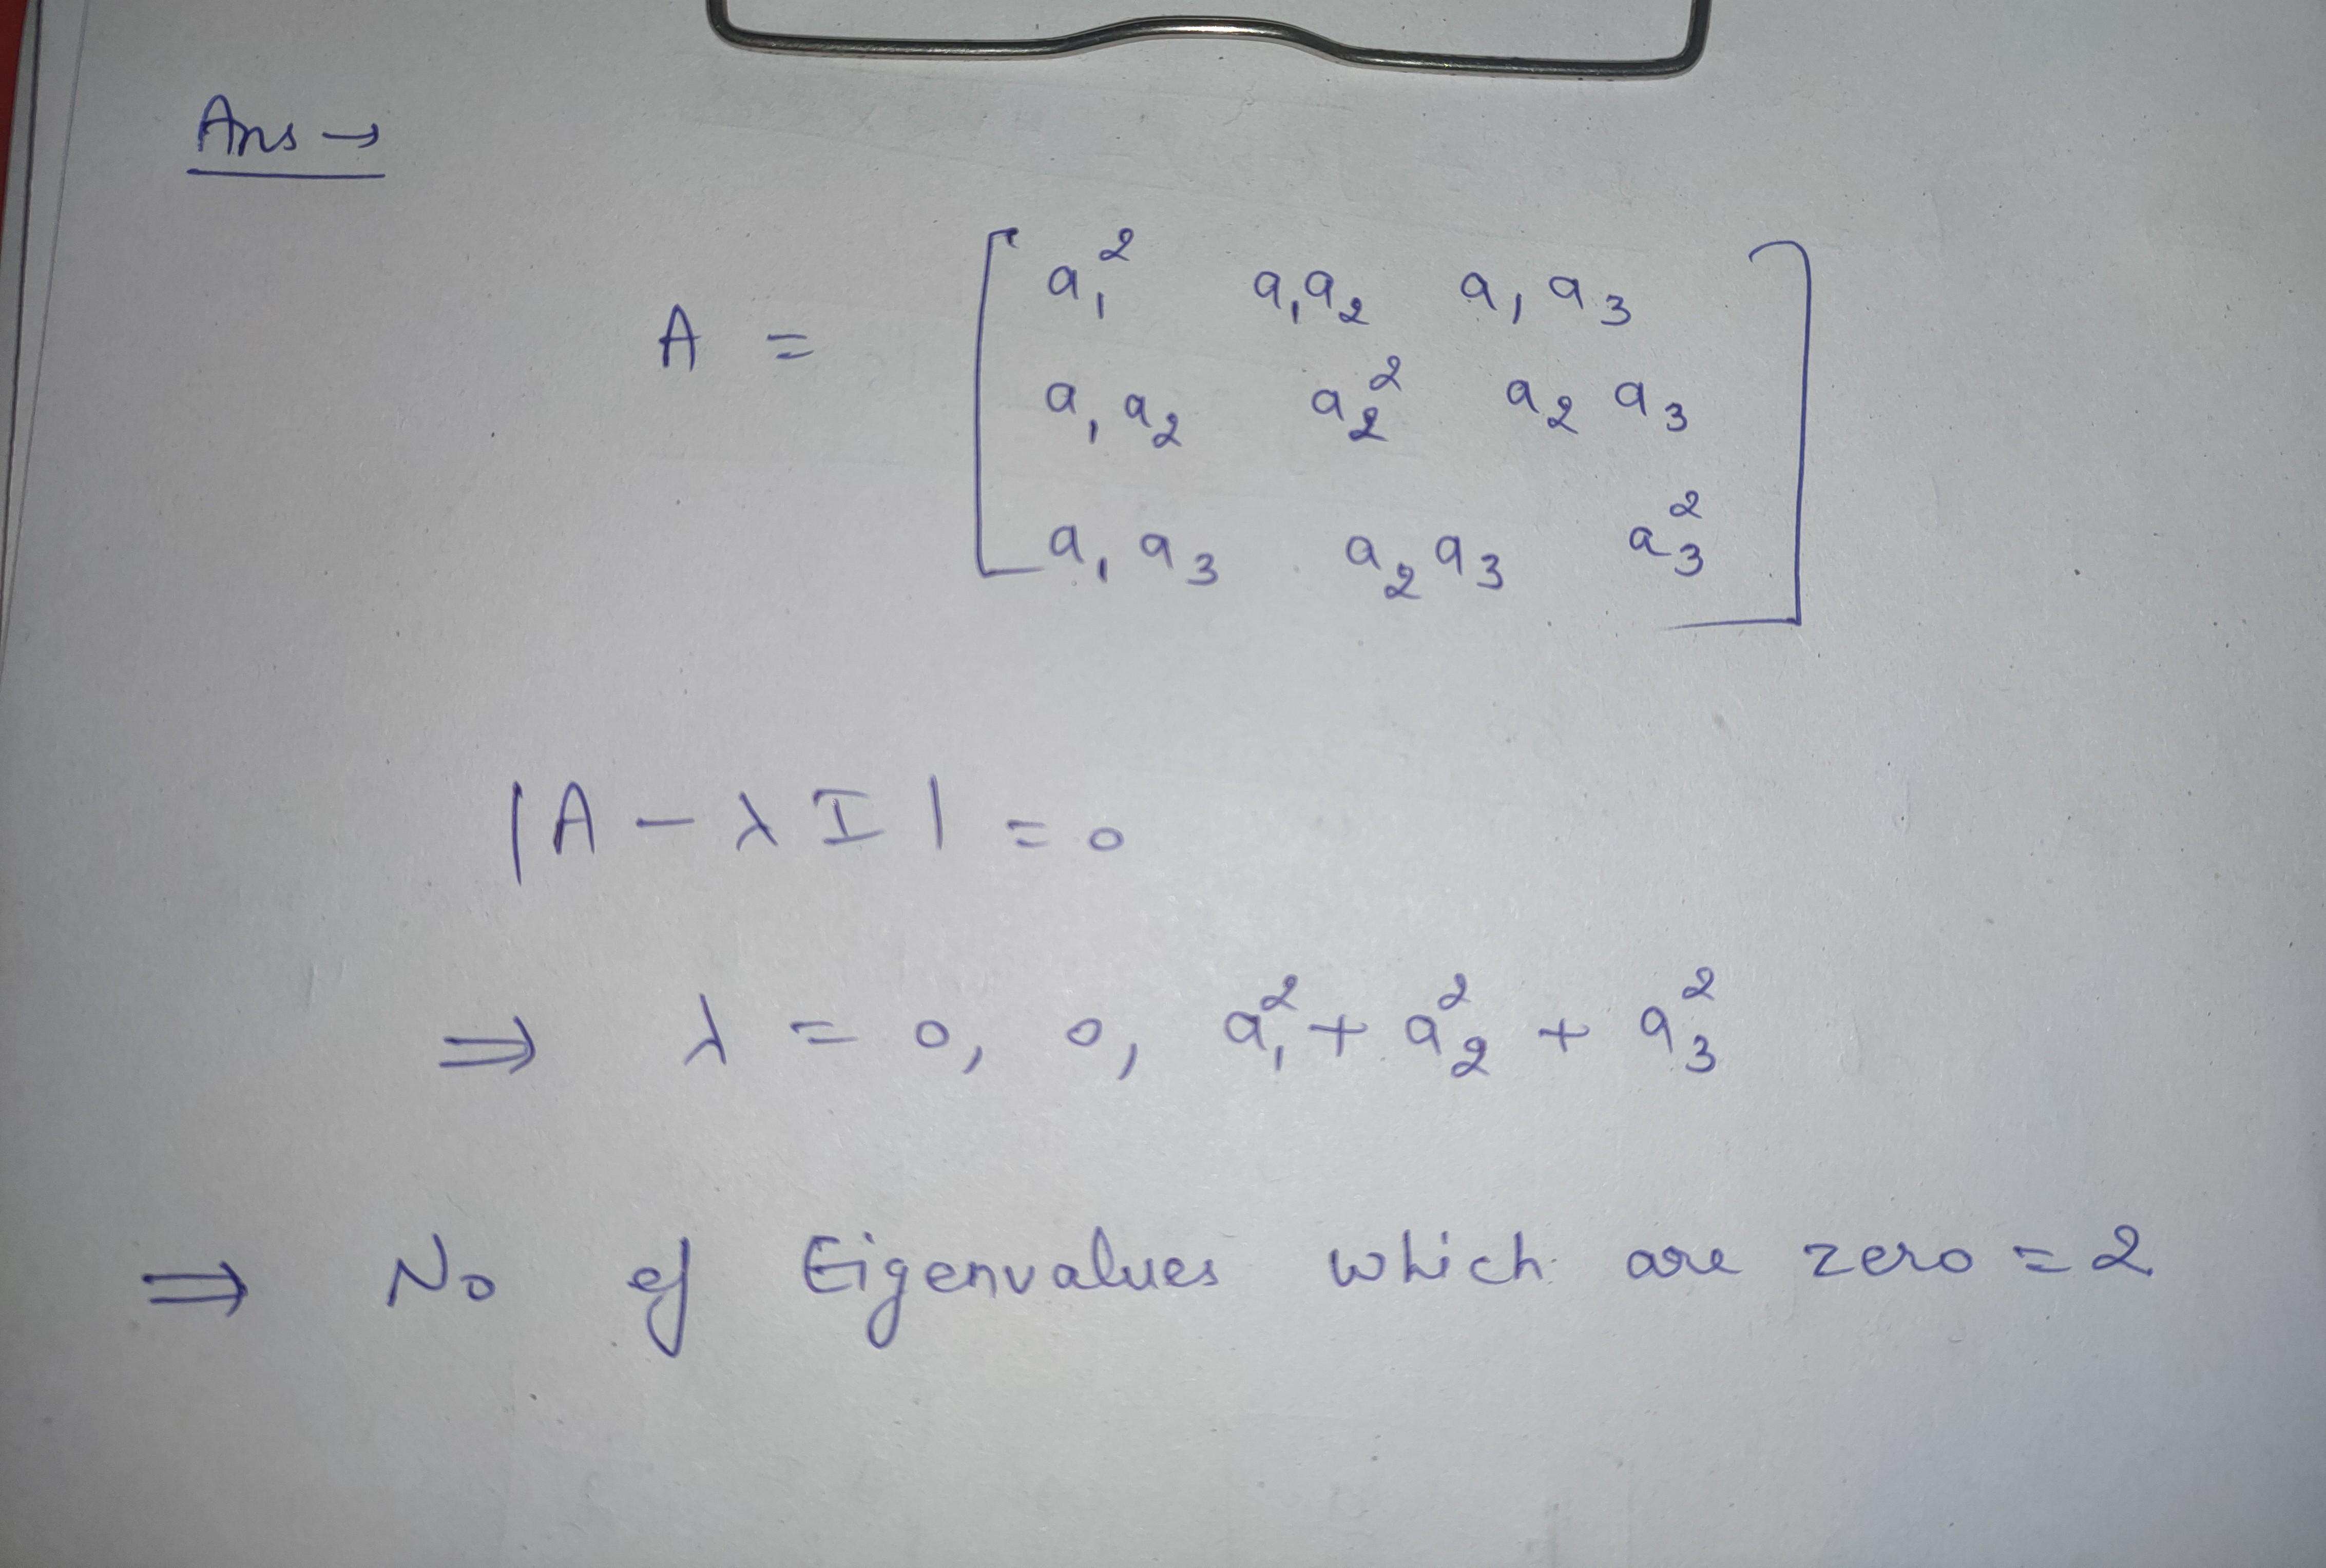 Ans →
A = [ a₁² a₁a₂ a₁a₃
a₁a₂ a₂² a₂a₃
a₁a₃ a₂a₃ a₃² ]
|A - λI| = 0
⇒ λ = 0, 0, a₁² + a₂² + a₃²
⇒ No of Eigenvalues which are zero = 2